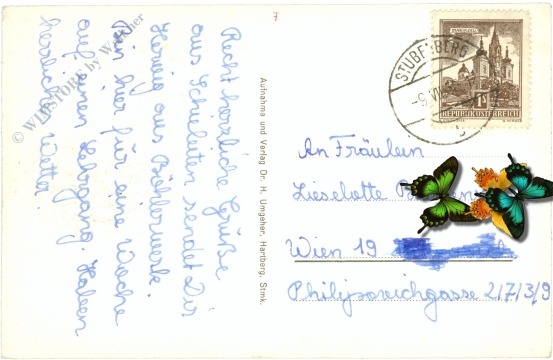 7
Recht herzliche Grüße
aus Schieleiten sendet Dir
Herwig aus Böhlerwerk.
Bin hier für eine Woche
auf einen Lehrgang. Haben
herrliches Wetter.
© WEBSTORE by Walcher
Aufnahme und Verlag Dr. H. Umgeher, Hartberg, Stmk.
STUBENBERG
-9.VII.
MARIAZELL
1S
REPUBLIK ÖSTERREICH
An Fräulein
Lieselotte
Wien 19
Philippovichgasse 2/7/3/9